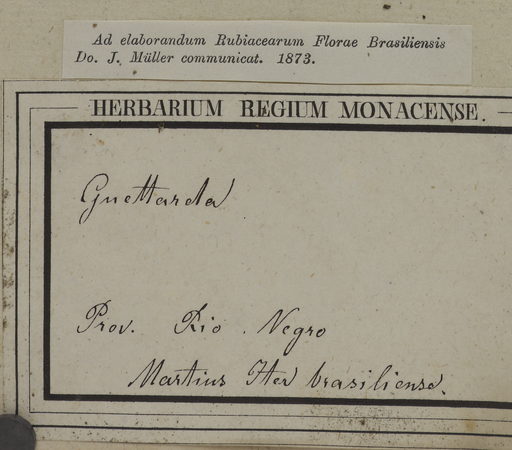 Ad elaborandum Rubiacearum Florae Brasiliensis
Do. J. Müller communicat. 1873.
HERBARIUM REGIUM MONACENSE.
Guettarda
Prov. Rio Negro
Martius Iter brasiliense.